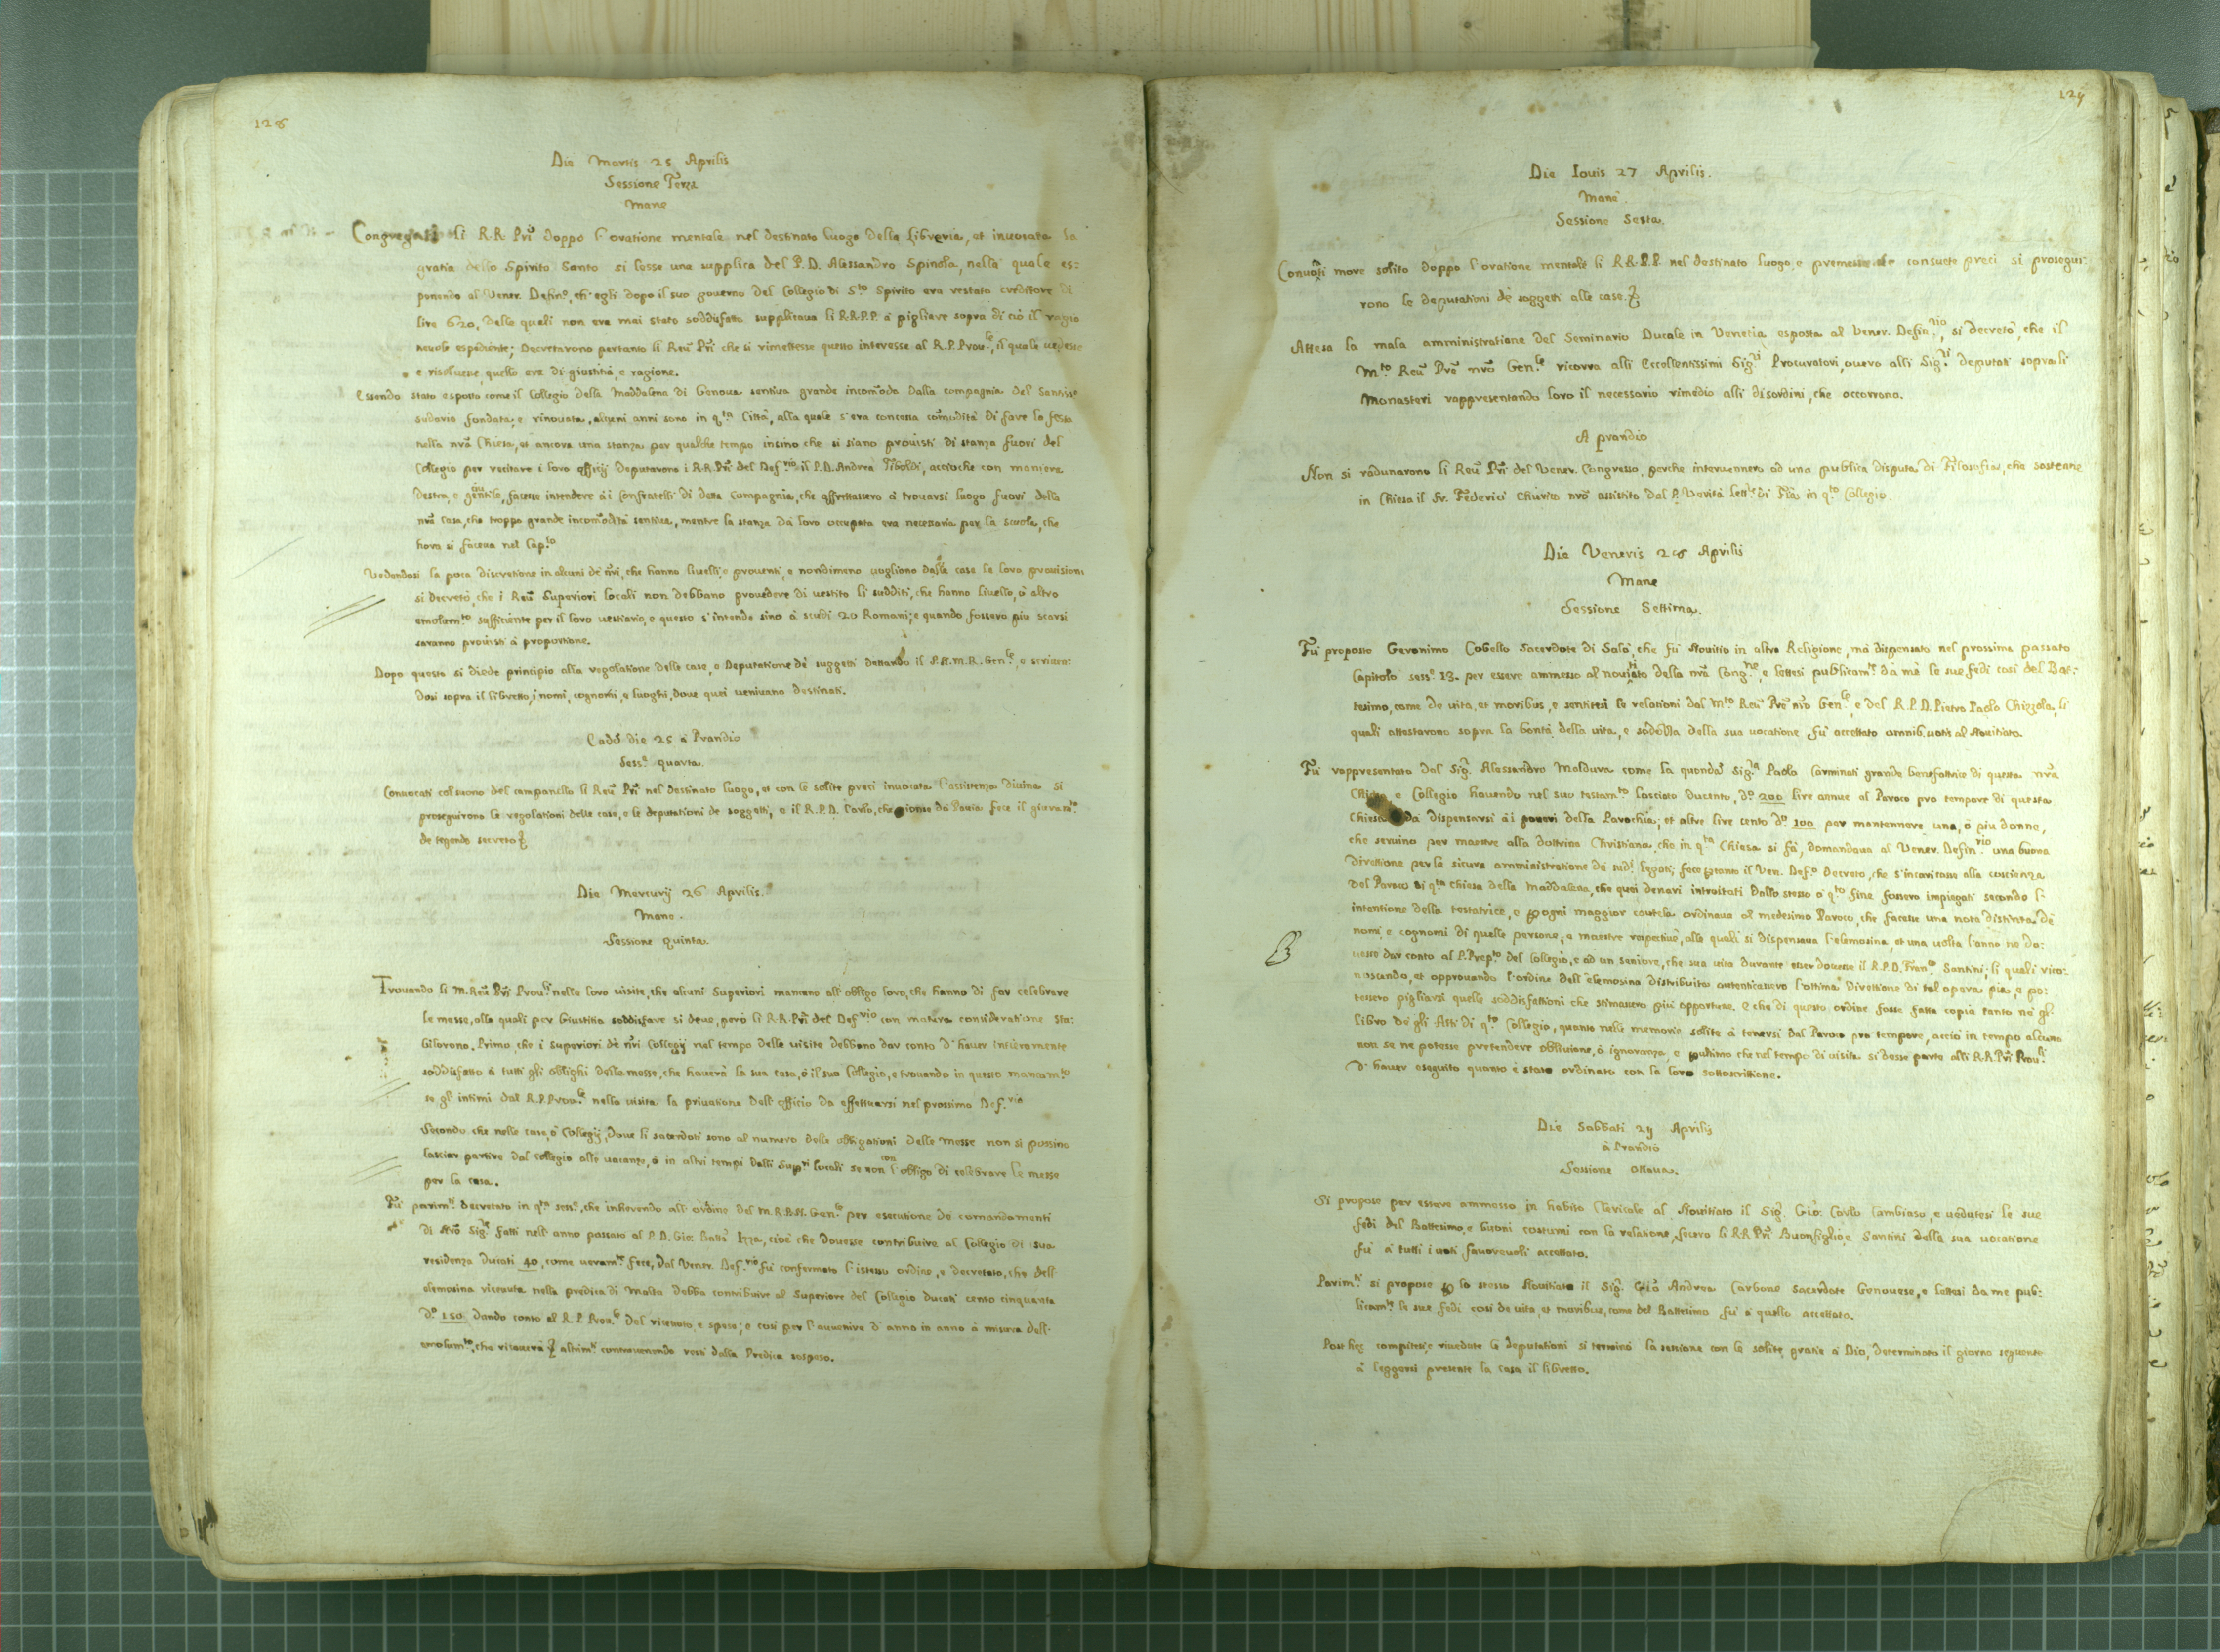 128
Die Martis 25 Aprilis
Sessione Terza
Mane
Congregati li R.R. Pri doppo l'oratione mentale nel destinato luogo della libraria, et inuocata la
gratia dello Spirito Santo si lesse una supplica del P.D. Alessandro Spinola, nella quale es:
ponendo al Vener. Defin.o, ch'egli dopo il suo governo del Collegio di S.to Spirito era restato creditore di
lire 620, delle quali non era mai stato soddisfatto supplicaua li R.R.P.P. à pigliare sopra di ciò il ragio
neuole espediente; Decretarono pertanto li Reu. Pri che si rimettesse questo interesse al R.P. Prou.le, il quale uedesse
e risoluesse, quello era di giustitia, e ragione.
Essendo stato esposto come il Collegio della Maddalena di Genoua sentiua grande incomodo dalla compagnia del Santiss.o
sudario fondata, e rinouata, alcuni anni sono in q.ta Città, alla quale s'era concessa comodità di fare la festa
nella nra Chiesa, et ancora una stanza per qualche tempo insino che si siano prouisti di stanza fuori del
Collegio per recitare i loro officij deputarono i R.R. Pri del Def.rio il P.D. Andrea Tiboldi, accioche con maniera
destra, e gentile, facesse intendere à i Confratelli di detta Compagnia, che affrettassero à trouarsi luogo fuori della
nra casa, che troppo grande incomodità sentiua, mentre la stanza da loro occupata era necessaria per la scuola, che
hora si faceua nel Cap.lo
Vedendosi la poca discretione in alcuni de nri, che hanno liuelli, e prouenti, e nondimeno uogliono dalle case le loro prouisioni
si decretò, che i Reu. Superiori locali non debbano prouedere di uestito li sudditi, che hanno liuello, ò altro
emolum.to sufficiente per il loro uestiario, e questo s'intende sino à scudi 20 Romani; e quando fossero piu scarsi
saranno prouisti à proportione.
Dopo questo si diede principio alla regolatione delle case, e Deputatione de suggetti dettando il P.N.M.R. Gen.le, e scriuen:
dosi sopra il libretto, i nomi, cognomi, e luoghi, doue quei ueniuano destinati.
Eadē die 25 à Prandio
Sess.e quarta.
Conuocati col suono del campanello li Reu. Pri nel destinato luogo, et con le solite preci inuocata l'assistenza diuina si
proseguirono le regolationi delle case, e le deputationi de soggetti, e il R.P.D. Carlo, che gionse da Pauia fece il giuram.to
de tegendo secreto
Die Mercurij 26 Aprilis.
Mane.
Sessione quinta.
Trouando li M. Reu. Pri Prou.li nelle loro uisite, che alcuni Superiori mancano all'obligo loro, che hanno di far celebrare
le messe, alle quali per Giustitia soddisfare si deue, però li R.R. Pri del Def.rio con matura consideratione sta:
bilirono. Primo, che i superiori de nri Collegij nel tempo delle uisite debbano dar conto d'hauer intieramente
soddisfatto à tutti gli oblighi delle messe, che hauerà la sua casa, ò il suo Collegio, e trouando in questo mancam.to
se gl'intimi dal R.P. Prou.le nella uisita la priuatione dell'officio da effettuarsi nel prossimo Def.rio
Secondo che nelle case, ò Collegij, doue li sacerdoti sono al numero delle obligationi delle messe non si possino
lasciar partire dal collegio alle uacanze, ò in altri tempi dalli Sup.ri locali se non con l'obligo di celebrare le messe
per la casa.
Fù parim.te decretato in q.ta sess.e, che inherendo all'ordine del M.R.P.N. Gen.le per esecutione de comandamenti
di Nro Sig.re fatti nell'anno passato al P.D. Gio: Batta Izza, cioè che douesse contribuire al Collegio di sua
residenza ducati 40, come ueram.te fece, dal Vener. Def.rio fù confermato l'istesso ordine, e decretato, che dell'
elemosina riceuuta nella predica di Malta debba contribuire al Superiore del Collegio ducati cento cinquanta
D.i 150 dando conto al R.P. Prou.le del riceuuto, e speso; e così per l'auuenire d'anno in anno à misura dell'
emolum.to, che riceuerà altrim.te controuenendo resti dalla Predica sospeso.
129
Die Iouis 27 Aprilis.
Mane.
Sessione Sesta.
Conuocati more solito doppo l'oratione mentale li R.R.P.P. nel destinato luogo, e premesse le consuete preci si prosegui:
rono le deputationi de soggetti alle case.
Attesa la mala amministratione del Seminario Ducale in Venetia esposta al Vener. Defin.rio, si decretò, che il
M.to Reu. Pre nro Gen.le ricorra alli Eccellentissimi Sig.ri Procuratori, ouero alli Sig.ri deputati sopra li
Monasteri rappresentando loro il necessario rimedio alli disordini, che occorrono.
A prandio
Non si radunarono li Reu. Pri del Vener. Congresso, perche interuennero ad una publica disputa di Filosofia, che sostenne
in Chiesa il Fr. Federici Chierico nro assistito dal P. Verità lett.re di Fia in q.to Collegio.
Die Veneris 28 Aprilis
Mane
Sessione Settima.
Fù proposto Geronimo Cobello Sacerdote di Salò, che fù Nouitio in altra Religione, mà dispensato nel prossimo passato
Capitolo sess.e 13. per essere ammesso al nouitiato della nra Cong.ne, e lettesi publicam.te da me le sue fedi così del Bat:
tesimo, come de uita, et moribus, e sentitesi le relationi dal M.to Reu. Pre nro Gen.le, e del R.P.D. Pietro Paolo Chizzola, li
quali attestarono sopra la bontà della uita, e sodezza della sua uocatione fù accettato omnib. uotis al Nouitiato.
Fù rappresentato dal Sig.r Alessandro Maldura come la quondā Sig.ra Paola Carminati grande benefattrice di questa nra
Chiesa, e Collegio hauendo nel suo testam.to lasciato ducento, D.o 200 lire annue al Paroco pro tempore di questa
Chiesa da dispensarsi à i poueri della Parochia, et altre lire cento D.o 100 per mantennere una, ò piu donne,
che seruino per maestre alla dottrina Christiana, che in q.ta Chiesa si fà, domandaua al Vener. Defin.rio una buona
direttione per la sicura amministratione de sud.i legati; fece ptanto il Ven. Def.o Decreto, che s'incaricasse alla coscienza
del Paroco di q.ta Chiesa della Maddalena, che quei denari introitati dallo stesso à q.to fine fossero impiegati secondo l'
intentione della testatrice, e p ogni maggior cautela ordinaua al medesimo Paroco, che facesse una nota distinta de
nomi, e cognomi di quelle persone, e maestre respectiuè, alle quali si dispensaua l'elemosina, et una uolta l'anno ne do:
uesse dar conto al P. Prep.to del Collegio, e ad un seniore, che sua uita durante esser douesse il R.P.D. Fran.co Santini; li quali rico:
noscendo, et approuando l'ordine dell'elemosina distribuita autenticassero l'ottima direttione di tal opera pia, e po:
tessero pigliarsi quelle soddisfattioni che stimassero più opportune. E che di questo ordine fosse fatta copia tanto ne gl'
libro de gli Atti di q.to Collegio, quanto nelle memorie solite à tenersi dal Paroco pro tempore, acciò in tempo alcuno
non se ne potesse pretendere obliuione, ò ignoranza, e pultimo che nel tempo di uisita si desse parte alli R.R. Pri Prou.li
d'hauer eseguito quanto è stato ordinato con la loro sottoscrittione.
Die Sabbati 29 Aprilis
à Prandio
Sessione ottaua.
Si propose per essere ammesso in habito Clericale al Nouitiato il Sig.r Gio: Carlo Cambiaso, e uedutesi le sue
fedi del Battesimo, e buoni costumi con la relatione, fecero li R.R. Pri Buonfiglio, e Santini della sua uocatione
fù à tutti i uoti fauoreuoli accettato.
Parim.te si propose p lo stesso Nouitiato il Sig.r Gio: Andrea Carbone Sacerdote Genouese, e lettesi da me pub:
licam.te le sue fedi così de uita, et moribus, come del Battesimo fù à quello accettato.
Post hęc compitesi, e riuedute le deputationi si terminò la sessione con le solite gratie à Dio, determinato il giorno seguente
à leggersi presente la casa il libretto.